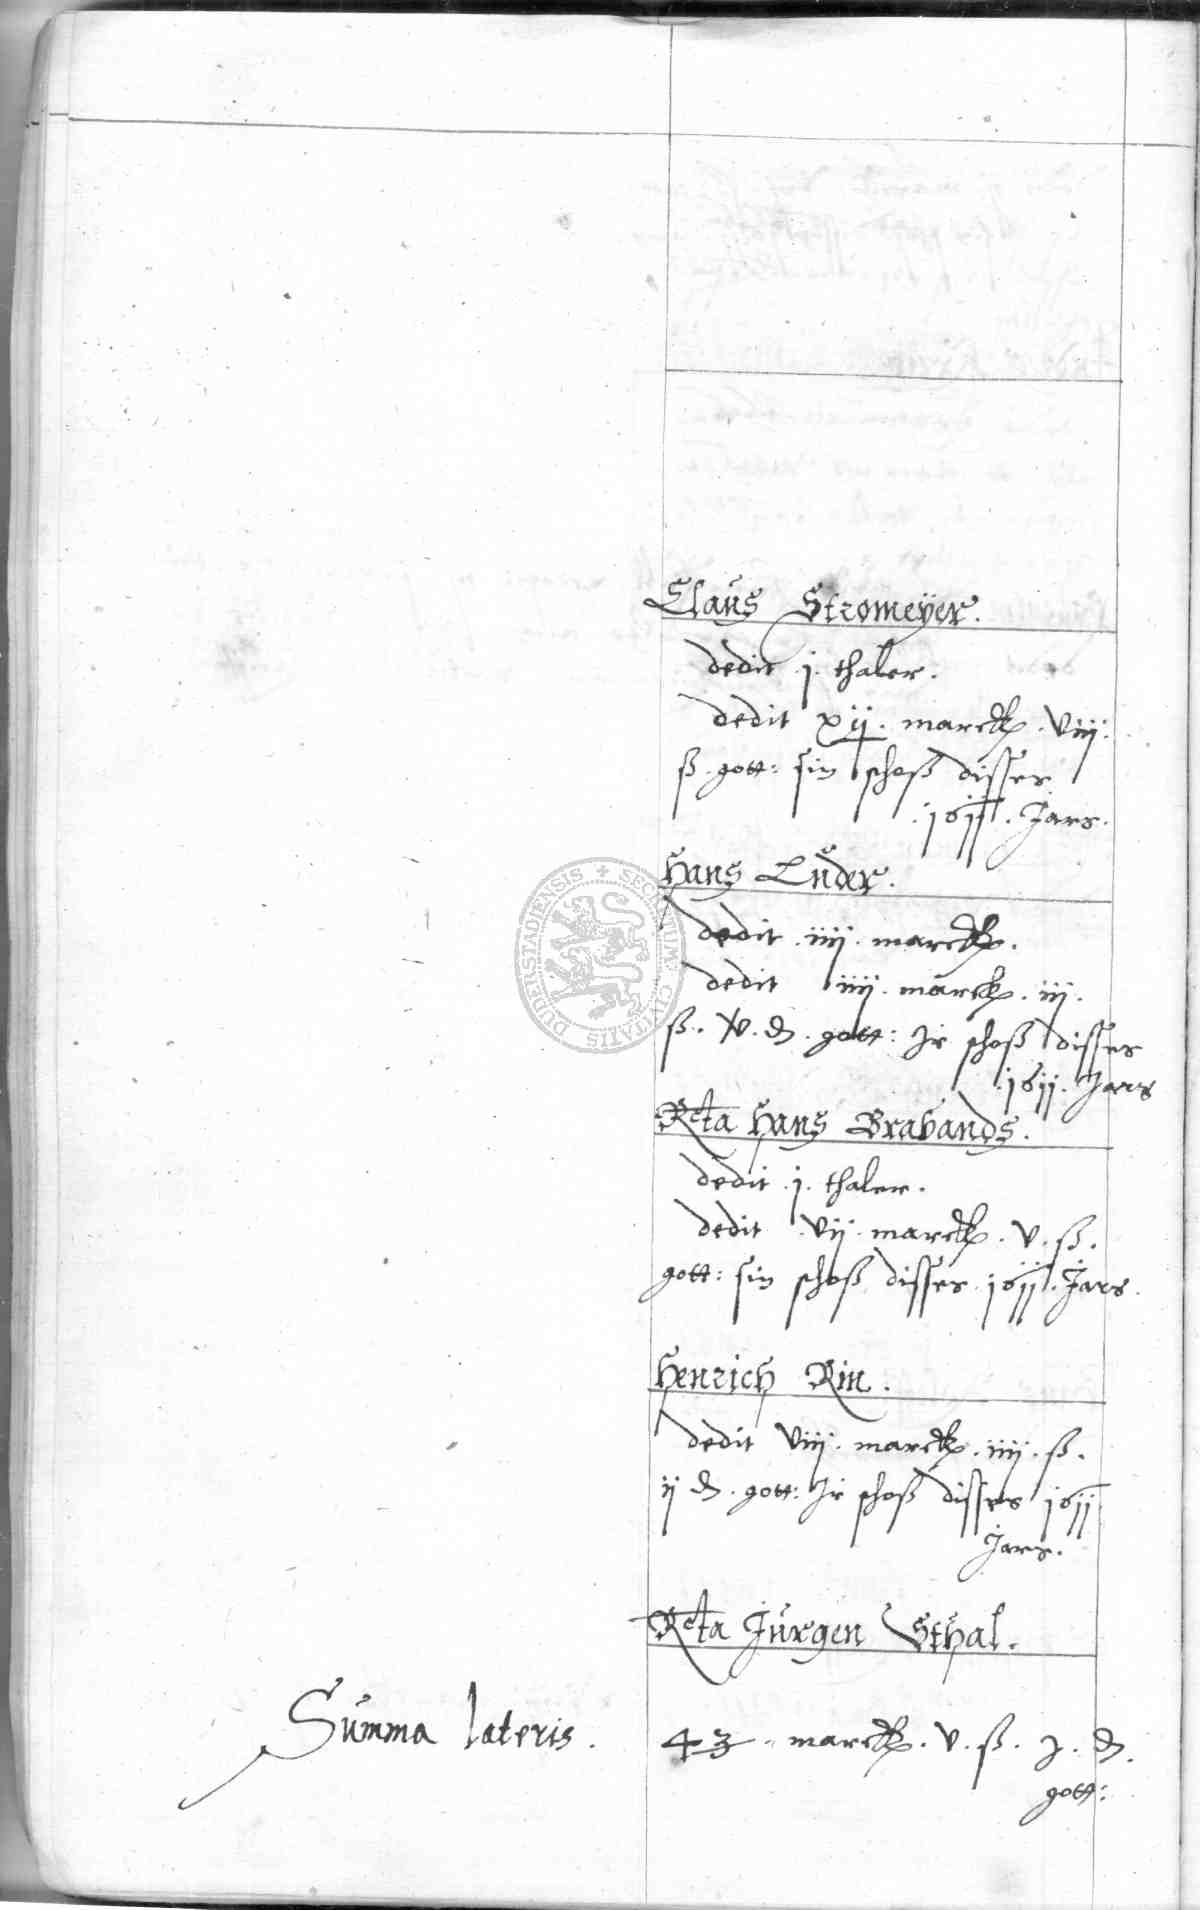 Claus Stromeÿer.
dedit .j. thaler.
dedit xij. marck. viiij.
ß. gott: sin schoß disses
.1611. Jars.
Hans Ender.
dedit .iiij. marck.
dedit iiij. marck. iij.
ß. v. d. gott: Ir schoß disses
.1611. Jars
Rcta Hans Brabands.
dedit .j. thaler.
dedit vij. marck. v. ß.
gott: sin schoß disses .1611. Jars.
Henrich Rin.
dedit viiij. marck. iiij. ß.
ij d. gott: Ir schoß disses 1611
Jars.
Rcta Jürgen Sthal.
Summa lateris. 43. marck. v. ß. j. d.
gott:
SECRETUM CIVITATIS DUDERSTADIENSIS